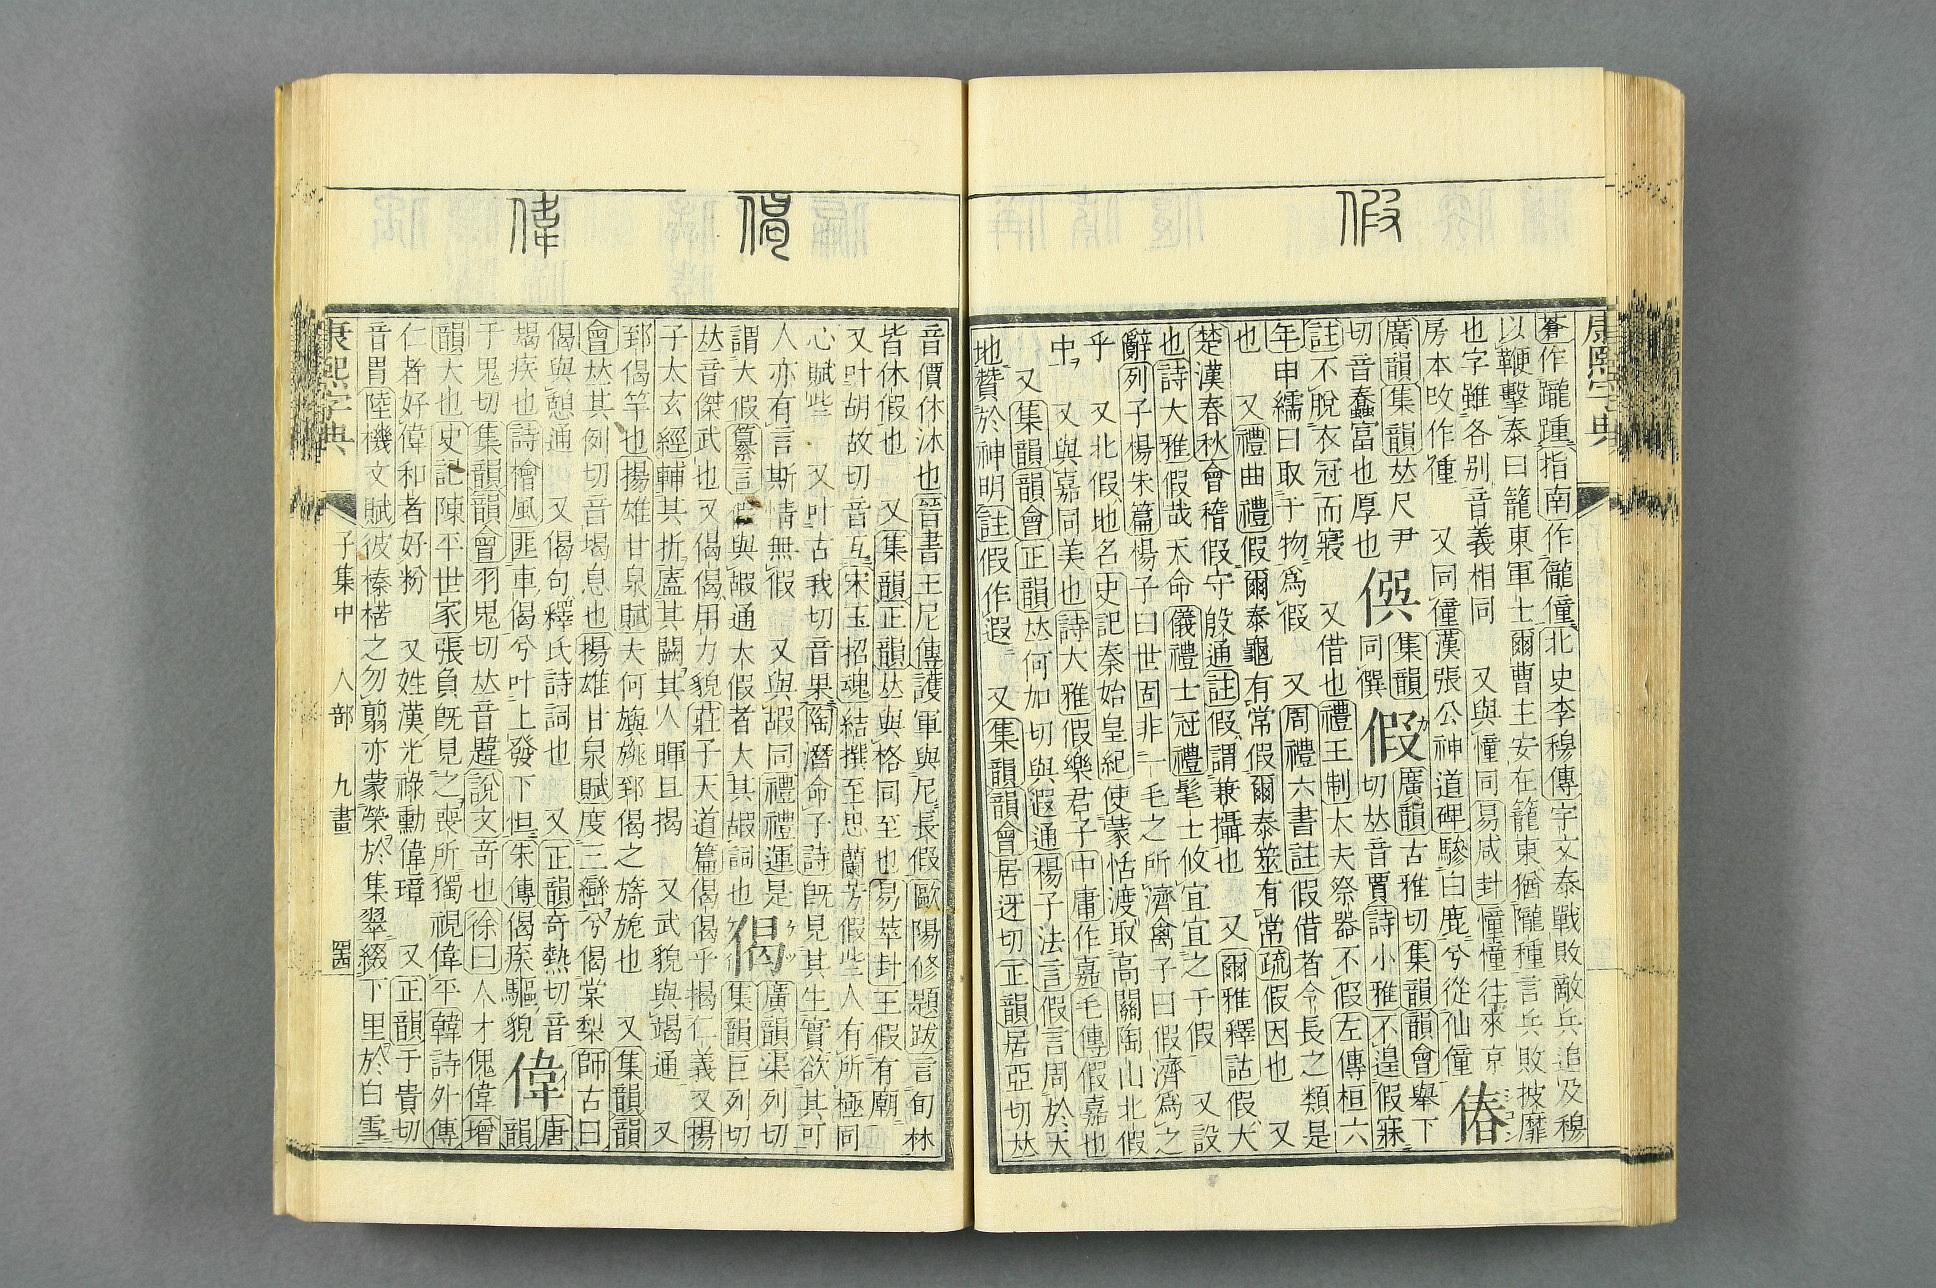 假
康熙字典
蒼作躘踵指南作儱僮北史李穆傳宇文泰戰敗敵兵追及穆
以鞭擊泰曰籠東軍士爾曹主安在籠東猶隴種言兵敗披靡
也字雖各別音義相同　又與憧同易咸封憧憧往來京
房本攺作偅　又同僮漢張公神道碑驂白鹿兮從仙僮
偆
廣韻集韻𠀤尺尹
切音蠢富也厚也
僎
集韻
同僎
假
廣韻古雅切集韻韻會舉下
切𠀤音賈詩小雅不遑假寐
註不脫衣冠而寢　又借也禮王制大夫祭器不假左傳桓六
年申繻曰取于物爲假　又周禮六書註假借者令長之類是
也　又禮曲禮假爾泰龜有常假爾泰筮有常疏假因也　又
楚漢春秋會稽假守殷通註假謂兼攝也　又爾雅釋詁假大
也詩大雅假哉天命儀禮士冠禮髦士攸宜宜之于假　又設
辭列子楊朱篇楊子曰世固非一毛之所濟禽子曰假濟爲之
乎　又北假地名史記秦始皇紀使蒙恬渡取高闕陶山北假
中　又與嘉同美也詩大雅假樂君子中庸作嘉毛傳假嘉也
又集韻韻會正韻𠀤何加切與遐通楊子法言假言周於天
地贊於神明註假作遐　又集韻韻會居迓切正韻居亞切𠀤
偈
偉
音價休沐也晉書王尼傳護軍與尼長假歐陽修題跋言旬休
皆休假也　又集韻正韻𠀤與格同至也易萃封王假有廟
又叶胡故切音互宋玉招魂結撰至思蘭芳假些人有所極同
心賦些　又叶古我切音果陶潛命子詩旣見其生實欲其可
人亦有言斯情無假　又與嘏同禮禮運是
謂大假纂言假與嘏通大假者大其嘏詞也
偈
廣韻渠列切
集韻巨列切
𠀤音傑武也又偈偈用力貌莊子天道篇偈偈乎揭仁義又揚
子太玄經輔其折廅其闕其人暉且揭　又武貌與竭通　又
郅偈竿也揚雄甘泉賦夫何旟旐郅偈之旖旎也　又集韻韻
會𠀤其例切音朅息也揚雄甘泉賦度三巒兮偈棠梨師古曰
偈與憩通　又偈句釋氏詩詞也　又正韻奇熱切音
竭疾也詩檜風匪車偈兮叶上發下怛朱傳偈疾驅貌
偉
唐韻
于鬼切集韻韻會羽鬼切𠀤音韙說文奇也徐曰人才傀偉增
韻大也史記陳平世家張負旣見之喪所獨視偉平韓詩外傳
仁者好偉和者好粉　又姓漢光祿勳偉璋　又正韻于貴切
音胃陸機文賦彼榛楛之勿翦亦蒙榮於集翠綴下里於白雪
康熙字典　子集中　人部　九畫